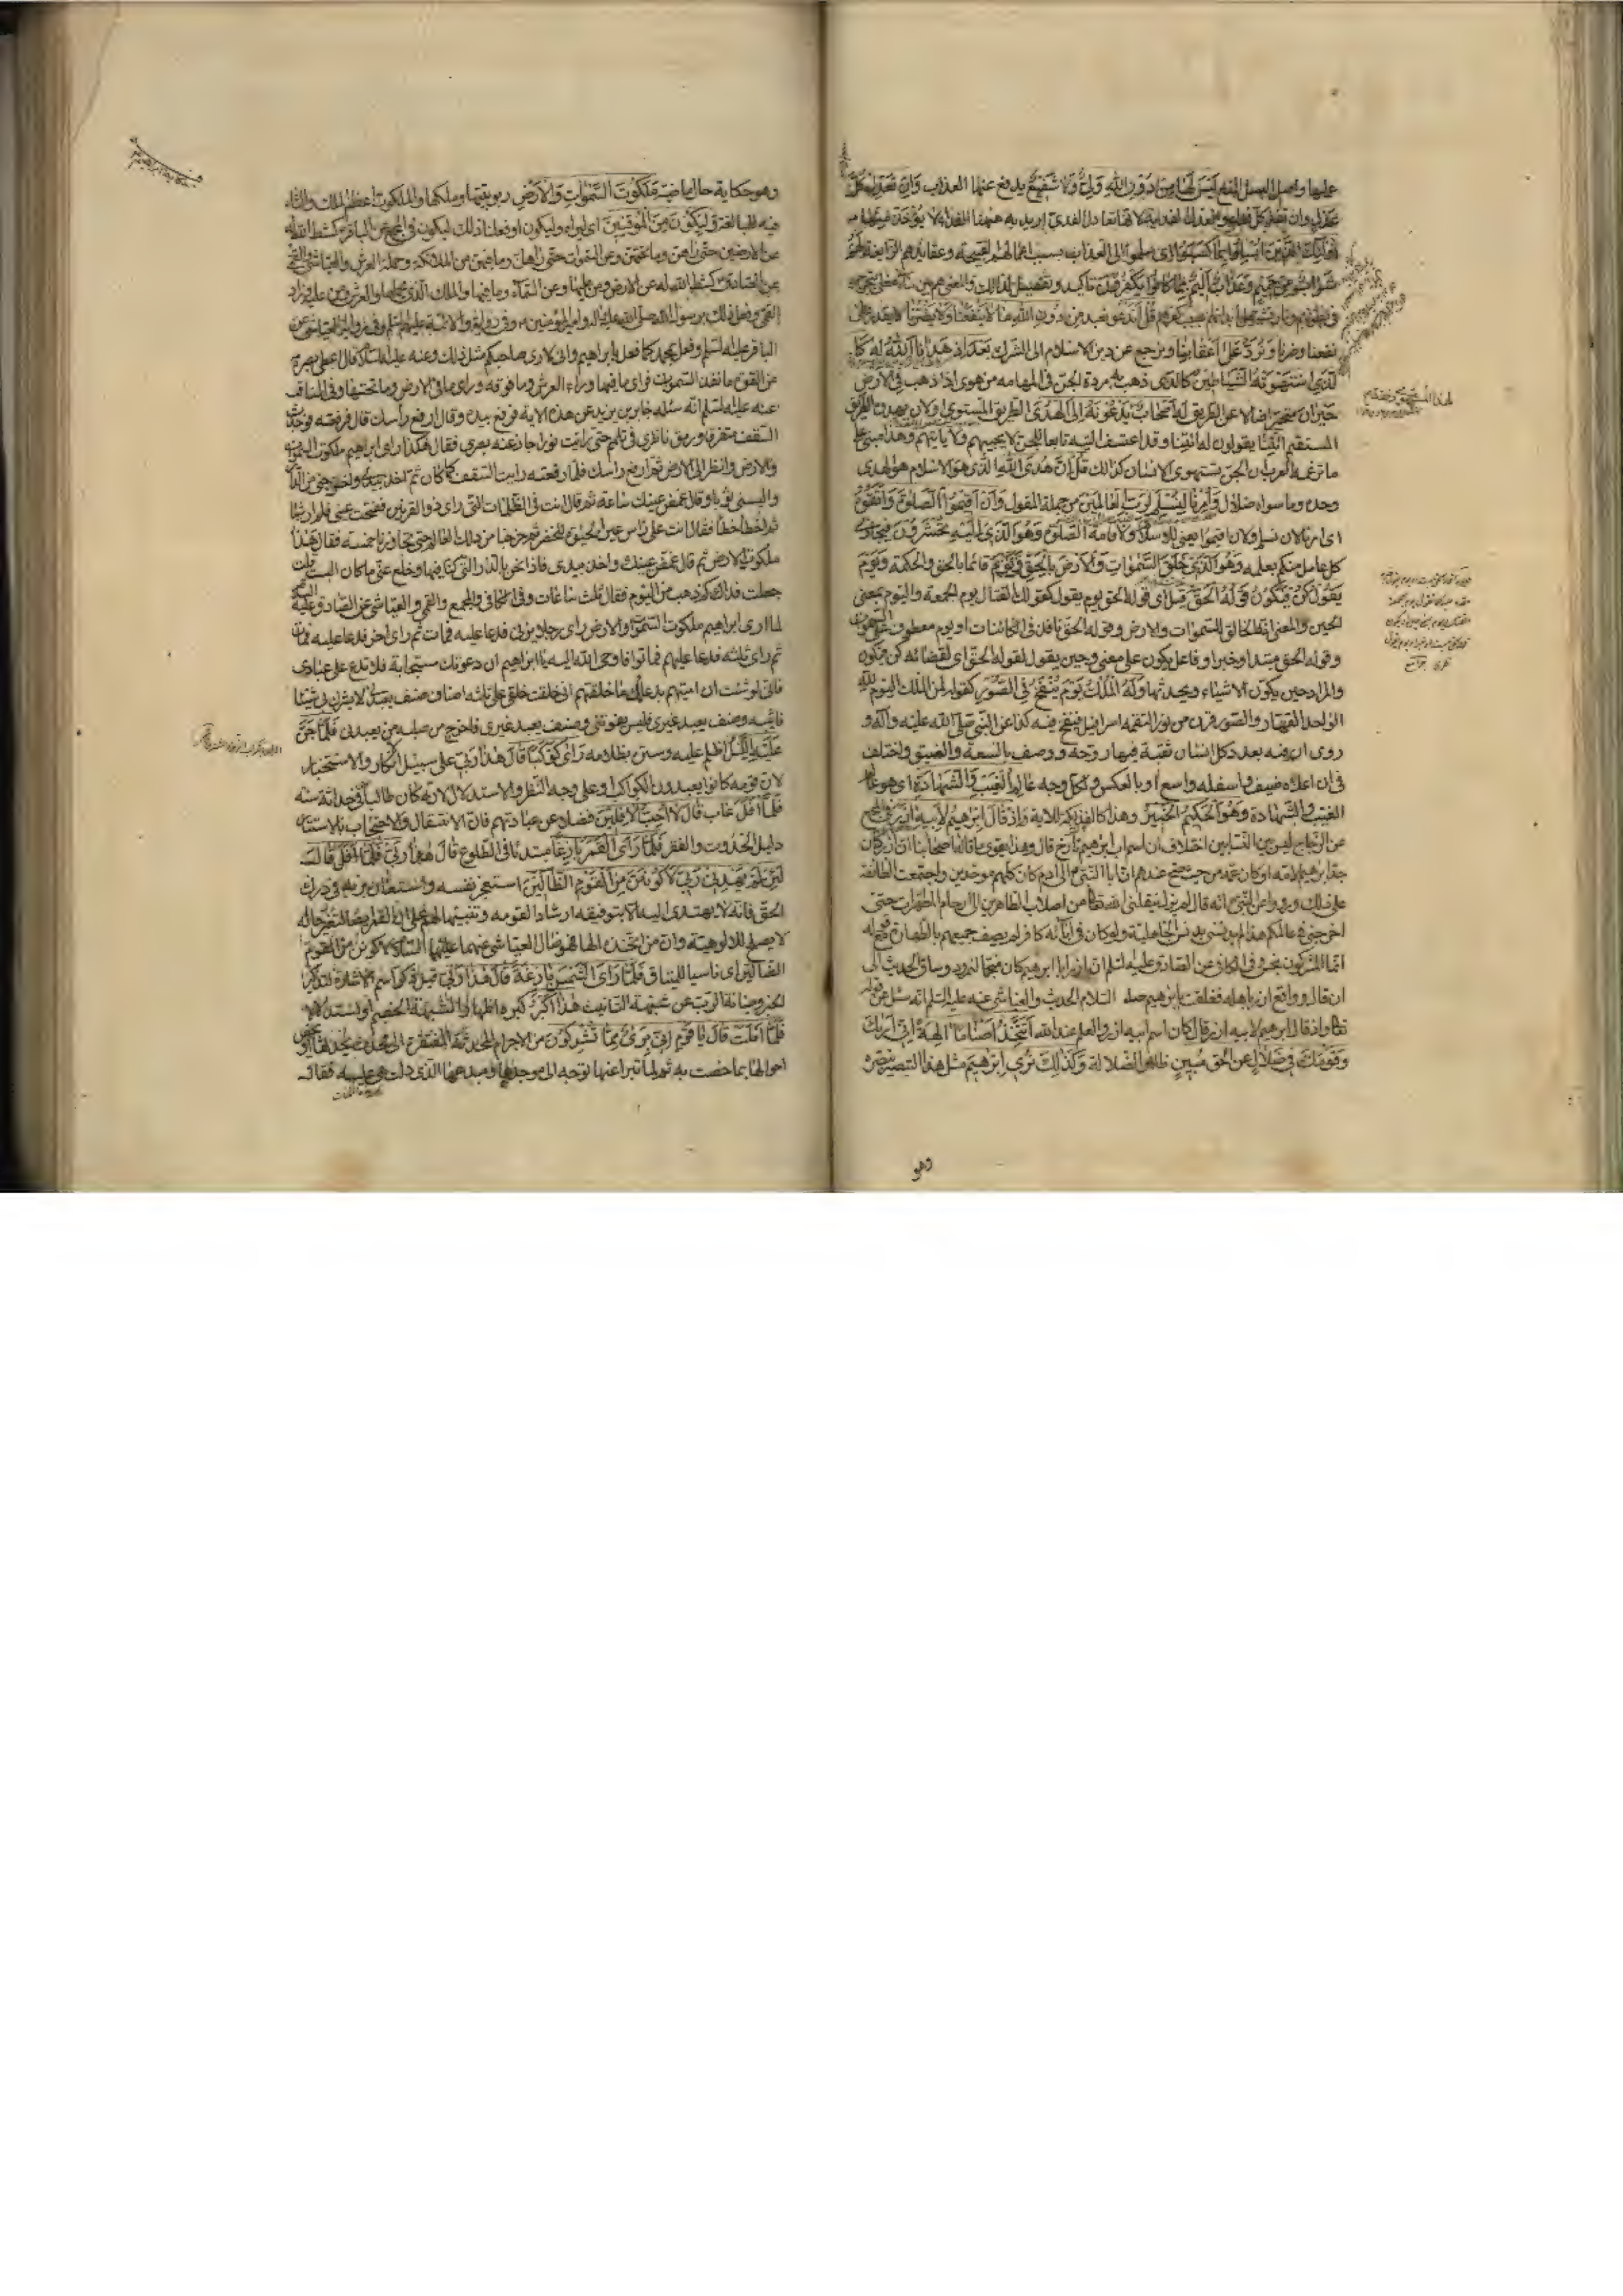 عليها واصل البسل المنع لَيْسَ لَهَا مِنْ دُونِ اللهِ وَلِيٌّ وَلَا شَفِيعٌ يدفع عنها العذاب وَاِنْ تَعْدِلْ كُلَّ
عَدْلٍ وان تفد كل فداء والعدل الفدية لانها تعادل المفدي اريد به هيهنا الفداء لا يُؤْخَذْ مِنْهَا
اُولٰئِكَ الَّذِينَ اُبْسِلُوا بِمَا كَسَبُوا اي سلموا الى العذاب بسبب اعمالهم القبيحة وعقائدهم الزايغة لَهُمْ
شَرَابٌ مِنْ حَمِيمٍ وَعَذَابٌ اَلِيمٌ بِمَا كَانُوا يَكْفُرُونَ تاكيد وتفصيل لذلك والمعنى هم بين ماء مغلي يتجرجر
في بطونهم ونار تشتعل بابدانهم بسبب كفرهم قُلْ اَنَدْعُو نعبد مِنْ دُونِ اللهِ مَا لَا يَنْفَعُنَا وَلَا يَضُرُّنَا لا يقدر على
نفعنا وضرنا وَنُرَدُّ عَلَى اَعْقَابِنَا ونرجع عن دين الاسلام الى الشرك بَعْدَ اِذْ هَدَانَا اللهُ له كَا
لَّذِي اسْتَهْوَتْهُ الشَّيَاطِينُ كالذي ذهب به مردة الجن في المهامه من هوى اذا ذهب فِي الْاَرْضِ
حَيْرَانَ متحيرا ضالا عن الطريق لَهُ اَصْحَابٌ يَدْعُونَهُ اِلَى الْهُدَى الطريق المستوي او الى ان يهدوه الطريق
المستقيم ائْتِنَا يقولون له ائتنا وقد اعتسف التيه تابعا للجن لا يجيبهم ولا ياتيهم وهذا مبني على
ما تزعمه العرب ان الجن تستهوي الانسان كذلك قُلْ اِنَّ هُدَى اللهِ الذي هو الاسلام هُوَ الْهُدَى
وحده وما سواه ضلال وَاُمِرْنَا لِنُسْلِمَ لِرَبِّ الْعَالَمِينَ من جملة المقول وَاَنْ اَقِيمُوا الصَّلٰوةَ وَاتَّقُوهُ
اي امرنا لان نسلم ولان اقيموا يعني للاسلام ولاقامة الصلوة وَهُوَ الَّذِي اِلَيْهِ تُحْشَرُونَ فيجازي
كل عامل منكم بعمله وَهُوَ الَّذِي خَلَقَ السَّمٰوَاتِ وَالْاَرْضَ بِالْحَقِّ قائما بالحق والحكمة وَيَوْمَ
يَقُولُ كُنْ فَيَكُونُ قَوْلُهُ الْحَقُّ قيل اي قوله الحق يوم يقول كقولك القتال يوم الجمعة واليوم بمعنى
الحين والمعنى انه الخالق للسموات والارض وقوله الحق نافذ في الكائنات او يوم معطوف على السموات
وقوله الحق مبتدا وخبر او فاعل يكون على معنى وحين يقول لقوله الحق اي لقضائه كن فيكون
والمراد حين يكون الاشياء ويحدثها وَلَهُ الْمُلْكُ يَوْمَ يُنْفَخُ فِي الصُّورِ كقوله لمن الملك اليوم لله
الواحد القهار والصور قرن من نور التقمه اسرافيل فينفخ فيه كذا عن النبي صلى الله عليه وآله و
روى ان فيه بعدد كل انسان ثقبة فيها روحه ووصف بالسعة والضيق واختلف
في ان اعلاه ضيق واسفله واسع او بالعكس ولكل وجه عَالِمُ الْغَيْبِ وَالشَّهَادَةِ اي هو عالم
الغيب والشهادة وَهُوَ الْحَكِيمُ الْخَبِيرُ وهذا كالفذلكة للاية وَاِذْ قَالَ اِبْرٰهِيمُ لِاَبِيهِ اٰزَرَ في المجمع
عن الزجاج ليس بين النسابين اختلاف ان اسم اب ابرهيم تارخ قال وهذا يقوي ما قاله اصحابنا ان آزر كان
جد ابرهيم لامه او كان عمه من حيث صح عندهم ان آباء النبي الى آدم كان كلهم موحدين واجتمعت الطائفة
على ذلك ورووا عن النبي انه قال لم يزل ينقلني الله تعالى من اصلاب الطاهرين الى ارحام المطهرات حتى
اخرجني في عالمكم هذا لم يدنسني بدنس الجاهلية ولو كان في آبائه كافر لم يصف جميعهم بالطهارة مع قوله
انما المشركون نجس وفي الكافي عن الصادق عليه السلم ان آزر ابا ابرهيم كان منجما لنمرود وساق الحديث الى
ان قال وواقع آزر باهله فعلقت بابرهيم عليه السلام الحديث والعياشي عنه عليه السلم انه سئل عن قوله
تعالى واذ قال ابرهيم لابيه آزر قال كان اسم ابيه آزر والعلم عند الله اَتَتَّخِذُ اَصْنَامًا اٰلِهَةً اِنِّي اَرٰيكَ
وَقَوْمَكَ فِي ضَلَالٍ عن الحق مُبِينٍ ظاهر الضلالة وَكَذٰلِكَ نُرِي اِبْرٰهِيمَ مثل هذا التبصير نبصره
وهو
وهو حكاية حال ماضية مَلَكُوتَ السَّمٰوَاتِ وَالْاَرْضِ ربوبيتها وملكها والملكوت اعظم الملك والتاء
فيه للمبالغة وَلِيَكُونَ مِنَ الْمُوقِنِينَ اي ليرى وليكون او فعلنا ذلك ليكون في المجمع عن الباقر كشط الله له
عن الارضين حتى رآهن وما تحتهن وعن السموات حتى رآهن وما فيهن من الملائكة وحملة العرش والعياشي والقمي
عن الصادق كشط الله له عن الارض ومن عليها وعن السماء وما فيها والملك الذي يحملها والعرش ومن عليه وزاد
القمي وفعل ذلك برسول الله صلى الله عليه وآله وامير المؤمنين وفي رواية والائمة عليهم السلم وفي اخرى العياشي عن
الباقر عليه السلم وفعل بمحمد كما فعل بابراهيم واني لارى صاحبكم مثل ذلك وعنه عليه السلم قال اعطي بصره
من القوة ما نفذ السموات فراى ما فيها وراى العرش وما فوقه وراى ما في الارض وما تحتها وفي المناقب
عنه عليه السلم انه سئله جابر بن يزيد عن هذه الآية فرفع بيده وقال ارفع راسك قال فرفعته فوجدت
السقف متفرقا ورمق ناظري في ثلم حتى رايت نورا حار عنه بصري فقال هكذا راى ابراهيم ملكوت السموات
والارض وانظر الى الارض ثم ارفع راسك فلما رفعته رايت السقف كما كان ثم اخذ بيدي واخرجني من الدار
والبسني ثوبا وقال غمض عينك ساعة ثم قال انت في الظلمات التي راى ذو القرنين ففتحت عيني فلم ار شيئا
ثم تخطا خطا فقال انت على راس عين الحيوة للخضر ثم خرجنا من ذلك العالم حتى تجاوزنا خمسة فقال هذا
ملكوت الارض ثم قال غمض عينك واخذ بيدي فاذا نحن بالدار التي كنا فيها وخلع عني ما كان البسنيه فقلت
جعلت فداك كم ذهب من اليوم فقال ثلث ساعات وفي الكافي والمجمع والقمي والعياشي عن الصادق عليه السلم
لما ارى ابراهيم ملكوت السموات والارض راى رجلا يزني فدعا عليه فمات ثم راى آخر فدعا عليه فمات
ثم راى ثلثة فدعا عليهم فماتوا فاوحى الله اليه يا ابراهيم ان دعوتك مستجابة فلا تدع على عبادي
فاني لو شئت ان اميتهم بدعائك ما خلقتهم اني خلقت خلقي على ثلثة اصناف صنف يعبدني لا يشرك بي شيئا
فاثيبه وصنف يعبد غيري فليس يفوتني وصنف يعبد غيري فاخرج من صلبه من يعبدني فَلَمَّا جَنَّ
عَلَيْهِ اللَّيْلُ اظلم عليه وستره بظلامه رَاٰى كَوْكَبًا قَالَ هٰذَا رَبِّي على سبيل الانكار والاستخبار
لان قومه كانوا يعبدون الكواكب او على وجه النظر والاستدلال لانه كان طالبا في حداثة سنه
فَلَمَّا اَفَلَ غاب قَالَ لَا اُحِبُّ الْاٰفِلِينَ فضلا عن عبادتهم فان الانتقال والاحتجاب بالاستتار
دليل الحدوث والفقر فَلَمَّا رَاَى الْقَمَرَ بَازِغًا مبتدئا في الطلوع قَالَ هٰذَا رَبِّي فَلَمَّا اَفَلَ قَالَ
لَئِنْ لَمْ يَهْدِنِي رَبِّي لَاَكُونَنَّ مِنَ الْقَوْمِ الضَّالِّينَ استعجز نفسه واستعان بربه في درك
الحق فانه لا يهتدي اليه الا بتوفيقه ارشادا لقومه وتنبيها لهم على ان القمر ايضا لتغير حاله
لا يصلح للالوهية وان من اتخذه الها فهو ضال العياشي عنهما عليهما السلم لاكونن من القوم
الضالين اي ناسيا للميثاق فَلَمَّا رَاَى الشَّمْسَ بَازِغَةً قَالَ هٰذَا رَبِّي قيل ذكر اسم الاشارة لتذكير
الخبر وصيانة الرب عن شبهة التانيث هٰذَا اَكْبَرُ كبره اظهارا لشبهة الخصم او استدلالا
فَلَمَّا اَفَلَتْ قَالَ يَا قَوْمِ اِنِّي بَرِيءٌ مِمَّا تُشْرِكُونَ من الاجرام المحدثة المفتقرة الى محدث
احوالها بما خصت به ثم لما تبرا عنها توجه الى موجدها ومبدعها الذي دلت هي عليه فقال